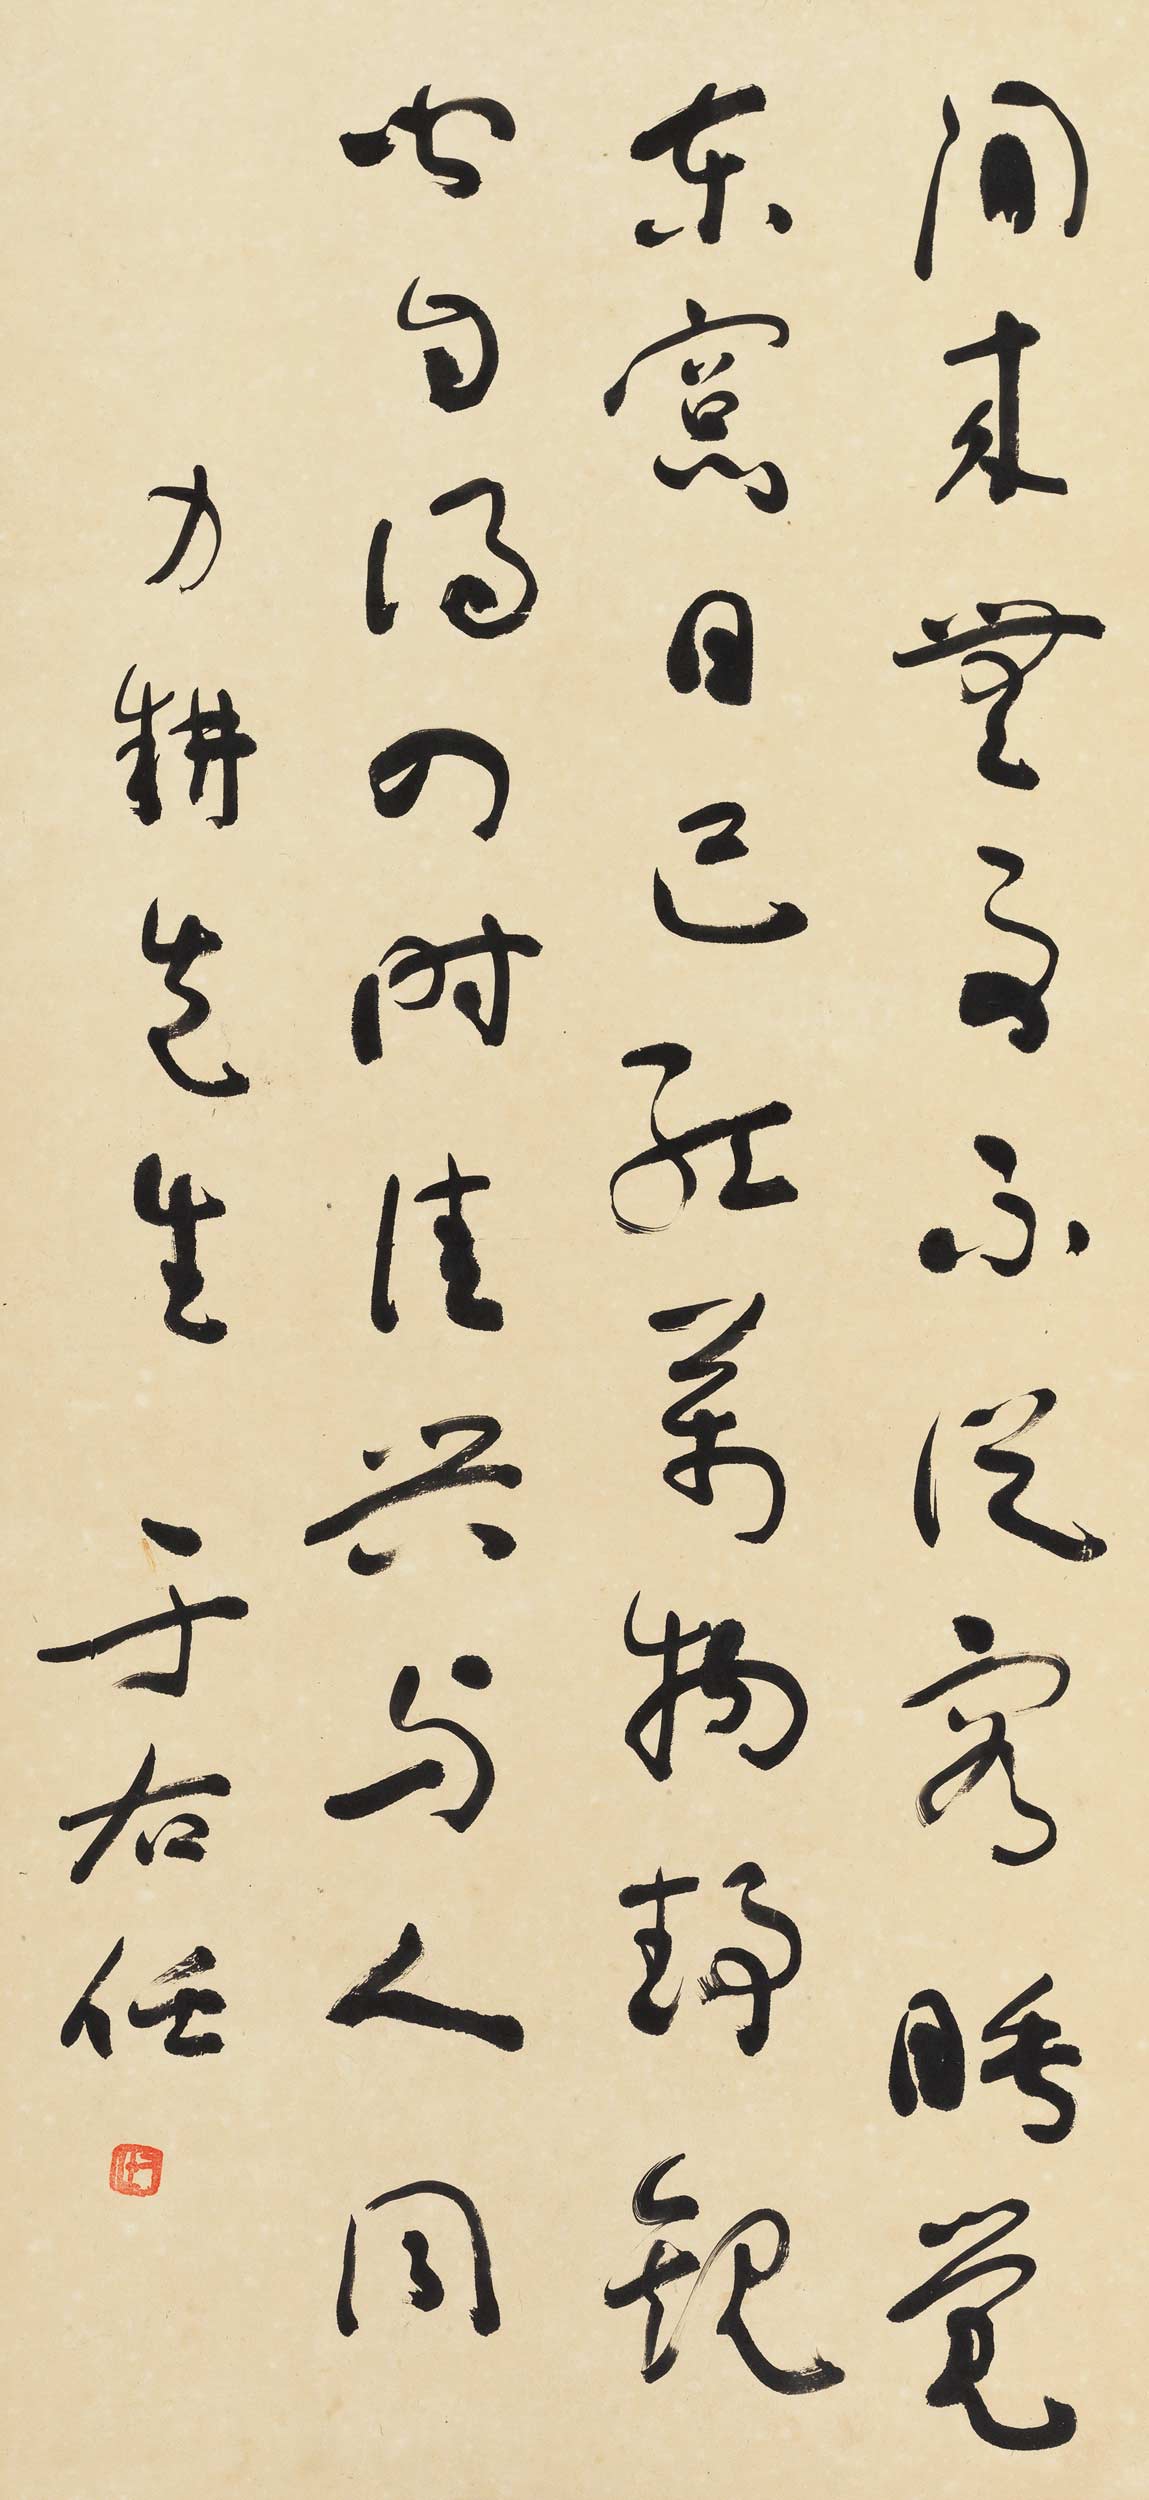 閒來無事不從容睡覺
東窗日已紅萬物靜觀
皆自得四時佳興與人同
力耕先生 于右任